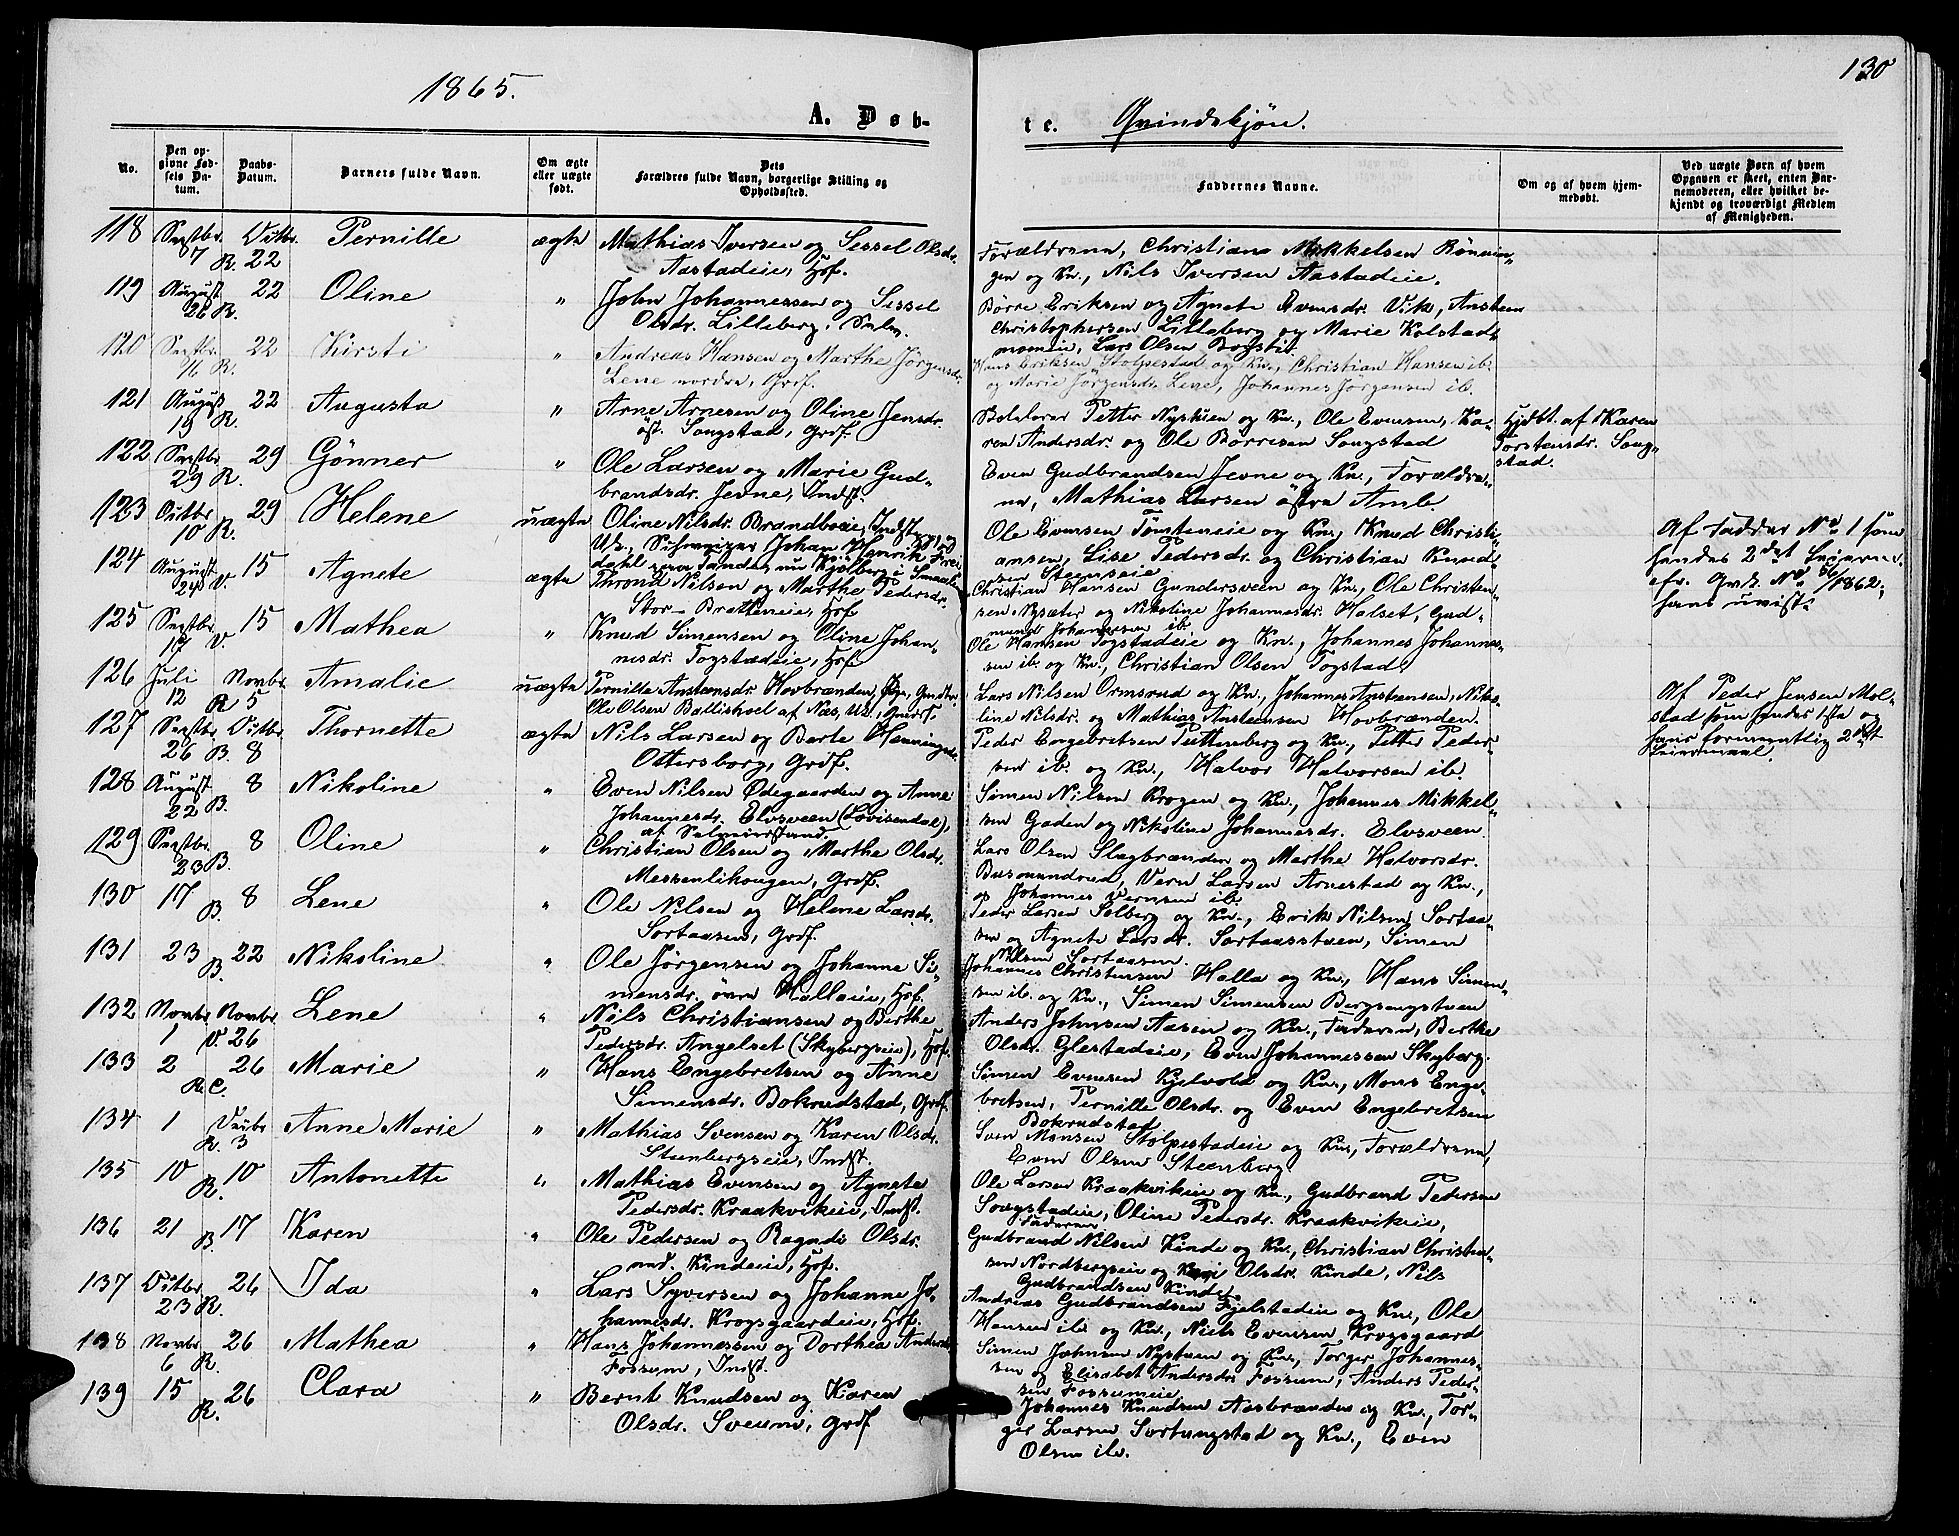 1865.
130
A. Døb-
te. Qvindekjøn.
No.
Den op-
givne Fød-
sels Da-
tum.
Daabs-
Datum.
Barnets fulde Navn.
Om ægte
eller uægte
født.
Dets
Forældres fulde Navn, borgerlige Stilling og
Opholdssted.
Faddernes Navne.
Om og af hvem hjem-
medøbt.
Ved uægte Børn af hvem
Opgaven er skeet, enten Bar-
nemoderen, eller hvilket be-
kjendt og troværdigt Medlem
af Menigheden.
118 Septbr. 7 R. Octbr. 22 Pernille ægte Mathias Iversen og Sessel Olsdr.
Aastadeie, Hsf.
Forældrene, Christians Mikkelsen Rønnin-
gen og Kn., Nils Iversen Aastadeie.
119 August 26 R. 22 Oline " John Johannessen og Sissel
Olsdr. Lilleberg, Selv.
Børre Eriksen og Agnete Evensdr. Vik, Ansteen
Christophersen Lilleberg og Marie Kolstad-
moeie, Lars Olsen Bogstie.
120 Septbr. R. 22 Kirsti " Andreas Hansen og Marthe Jørgensdr.
Lene nordre, Grdf.
Hans Eriksen Stolpestad og Kn., Christian Hansen ib.
og Marie Jørgensdr. Lene, Johannes Jørgensen ib.
121 August 19 R. 22 Augusta " Arne Arnesen og Oline Jensdr.
øst. Songstad, Grdf.
Petter Nystuen og Kn., Ole Evensen, Ka-
ren Andersdr. og Ole Børresen Songstad
Hjdbt. af Karen
Torstensdr. Song-
stad.
122 Septbr. 29 R. 29 Gønner " Ole Larsen og Marie Gud-
brandsdr. Jevne, Indst.
Even Gudbrandsen Jevne og Kn., Forældre-
ne, Mathias Larsen østre Amb.
123 Octbr. 10 R. 29 Helene uægte Oline Nilsdr. Brandboeie, Indst.
Uz., Schweizer Johan Henrik
dahl nu Kjølberg i Smaale.
Ole Evensen Tomteneie og Kn., Knud Christi-
ansen, Lise Pedersdr. og Christian Knud-
sen Steenseie.
Af Fadder No 1 som
hendes 2det Leierm.
cfr. 1862,
hans uvist.
124 August 24 V. 15 Agnete ægte Thrond Nilsen og Marthe Pedersdr.
Stor-Bratteneie, Hsf.
Christian Hansen Gundersveen og Kn., Ole Christen-
sen Nysæter og Nikoline Johannesdr. Halset, Gud-
mund Johannesen ib.
125 Septbr. 17 V. 15 Mathea " Knud Simensen og Oline Johan-
nesdr. Togstadeie, Hsf.
Ole Hansen Togstadeie og Kn., Johannes Johannes-
sen ib. og Kn., Christian Olsen Togstad.
126 Juli 12 R Novbr. 5 Amalie uægte Pernille Anstensdr. Hovbrænden, Pge, Gmdtr.
Ole Olsen Ballishoel af Næs, Uz., Gmdrs.
Lars Nilsen Ormsrud og Kn., Johannes Anstensen, Niko-
line Nilsdr. og Mathias Anstensen Hovbrænden.
Af Peder Jensen Mol-
stad som hendes 1ste og
hans formentlig 2det
Leiermaal.
127 Septbr. 26 B. Octbr. 8 Thornette ægte Nils Larsen og Berte Henningsdr.
Ottersborg, Grdf.
Peder Engebretsen Puttenberg og Kn., Petter Peder-
sen ib. og Kn., Halvor Halvorsen ib.
128 August 22 B. 8 Nikoline " Even Nilsen Ødegaarden og Anne
Johannesdr. Elvsveen (Lovisendal),
Simen Nilsen Krogen og Kn., Johannes Mikkel-
sen Gaden og Nikoline Johannesdr. Elvsveen.
129 Septbr. 23 B. 8 Oline " Christian Olsen og Marthe Olsdr.
Messenlihougen, Grdf.
Lars Olsen Slagbrænden og Marthe Halvorsdr.
Busmundrud, Vern Larsen Arnestad og Kn.,
og Johannes Vernsen ib.
130 17 B. 8 Lene " Ole Nilsen og Helene Larsdr.
Sortaasen, Grdf.
Peder Larsen Solberg og Kn., Erik Nilsen Sortaa-
sen og Agnete Larsdr. Sortaasstuen, Simen
Nilsen Sortaasen.
131 23 B. 22 Nikoline " Ole Jørgensen og Johanne Si-
mensdr. øvre Hallaeie, Hsf.
Johannes Christensen Halla og Kn., Hans Simen-
sen ib. og Kn., Simen Simensen Bergsengstuen
132 Novbr. 1 V. Novbr. 26 Lene " Nils Christiansen og Berthe
Pedersdr. Angelset (Skybergseie), Hsf.
Anders Johnsen Aasen og Kn., Faderen, Berthe
Olsdr. Glestadeie, Even Johannessen Skyberg.
133 2 R.C. 26 Marie " Hans Engebretsen og Anne
Simensdr. Bokrudstad, Grdf.
Simen Evensen Kjelvold og Kn., Mons Enge-
bretsen, Pernille Olsdr. og Even Engebretsen
Bokrudstad.
134 1 R. Decbr. 3 Anne Marie " Mathias Svensen og Karen Olsdr.
Steenbergseie, Indst.
Sven Monsen Stolpestadeie og Kn., Forældrene,
Even Olsen Steenberg
135 10 R. 10 Antonette " Mathias Evensen og Agnete
Pedersdr. Kraakvikeie, Indst.
Ole Larsen Kraakvikeie og Kn., Gudbrand Pedersen
Songstadeie, Oline Pedersdr. Kraakvikeie,
Faderen
136 21 B. 17 Karen " Ole Pedersen og Ragndi Olsdr.
ned. Kindeeie, Hsf.
Gudbrand Nilsen Kinde og Kn., Christian Christian-
sen Nordbergseie og Kari Olsdr. Kinde, Nils
Gudbrandsen Kinde.
137 Octbr. 23 R. 26 Ida " Lars Syversen og Johanne Jo-
hannesdr. Krogsgaardeie, Hsf.
Andreas Gudbrandsen Fjelstadeie og Kn., Ole
Hansen ib. og Kn., Niels Evensen Krogsgaard
138 Novbr. 6 R. 26 Mathea " Hans Johannessen og Dorthea Andersdr.
Fossum, Indst.
Simen Johnsen Nystuen og Kn., Torger Johannes-
sen og Elisabet Andersdr. Fossum, Anders Peder-
sen Fossumeie.
139 15 R. 26 Clara " Bernt Knudsen og Karen
Olsdr. Sveum, Grdf
Johannes Knudsen Aasbrænden og Kn., Tor-
ger Larsen Sortungstad og Kn., Even
Olsen ib.